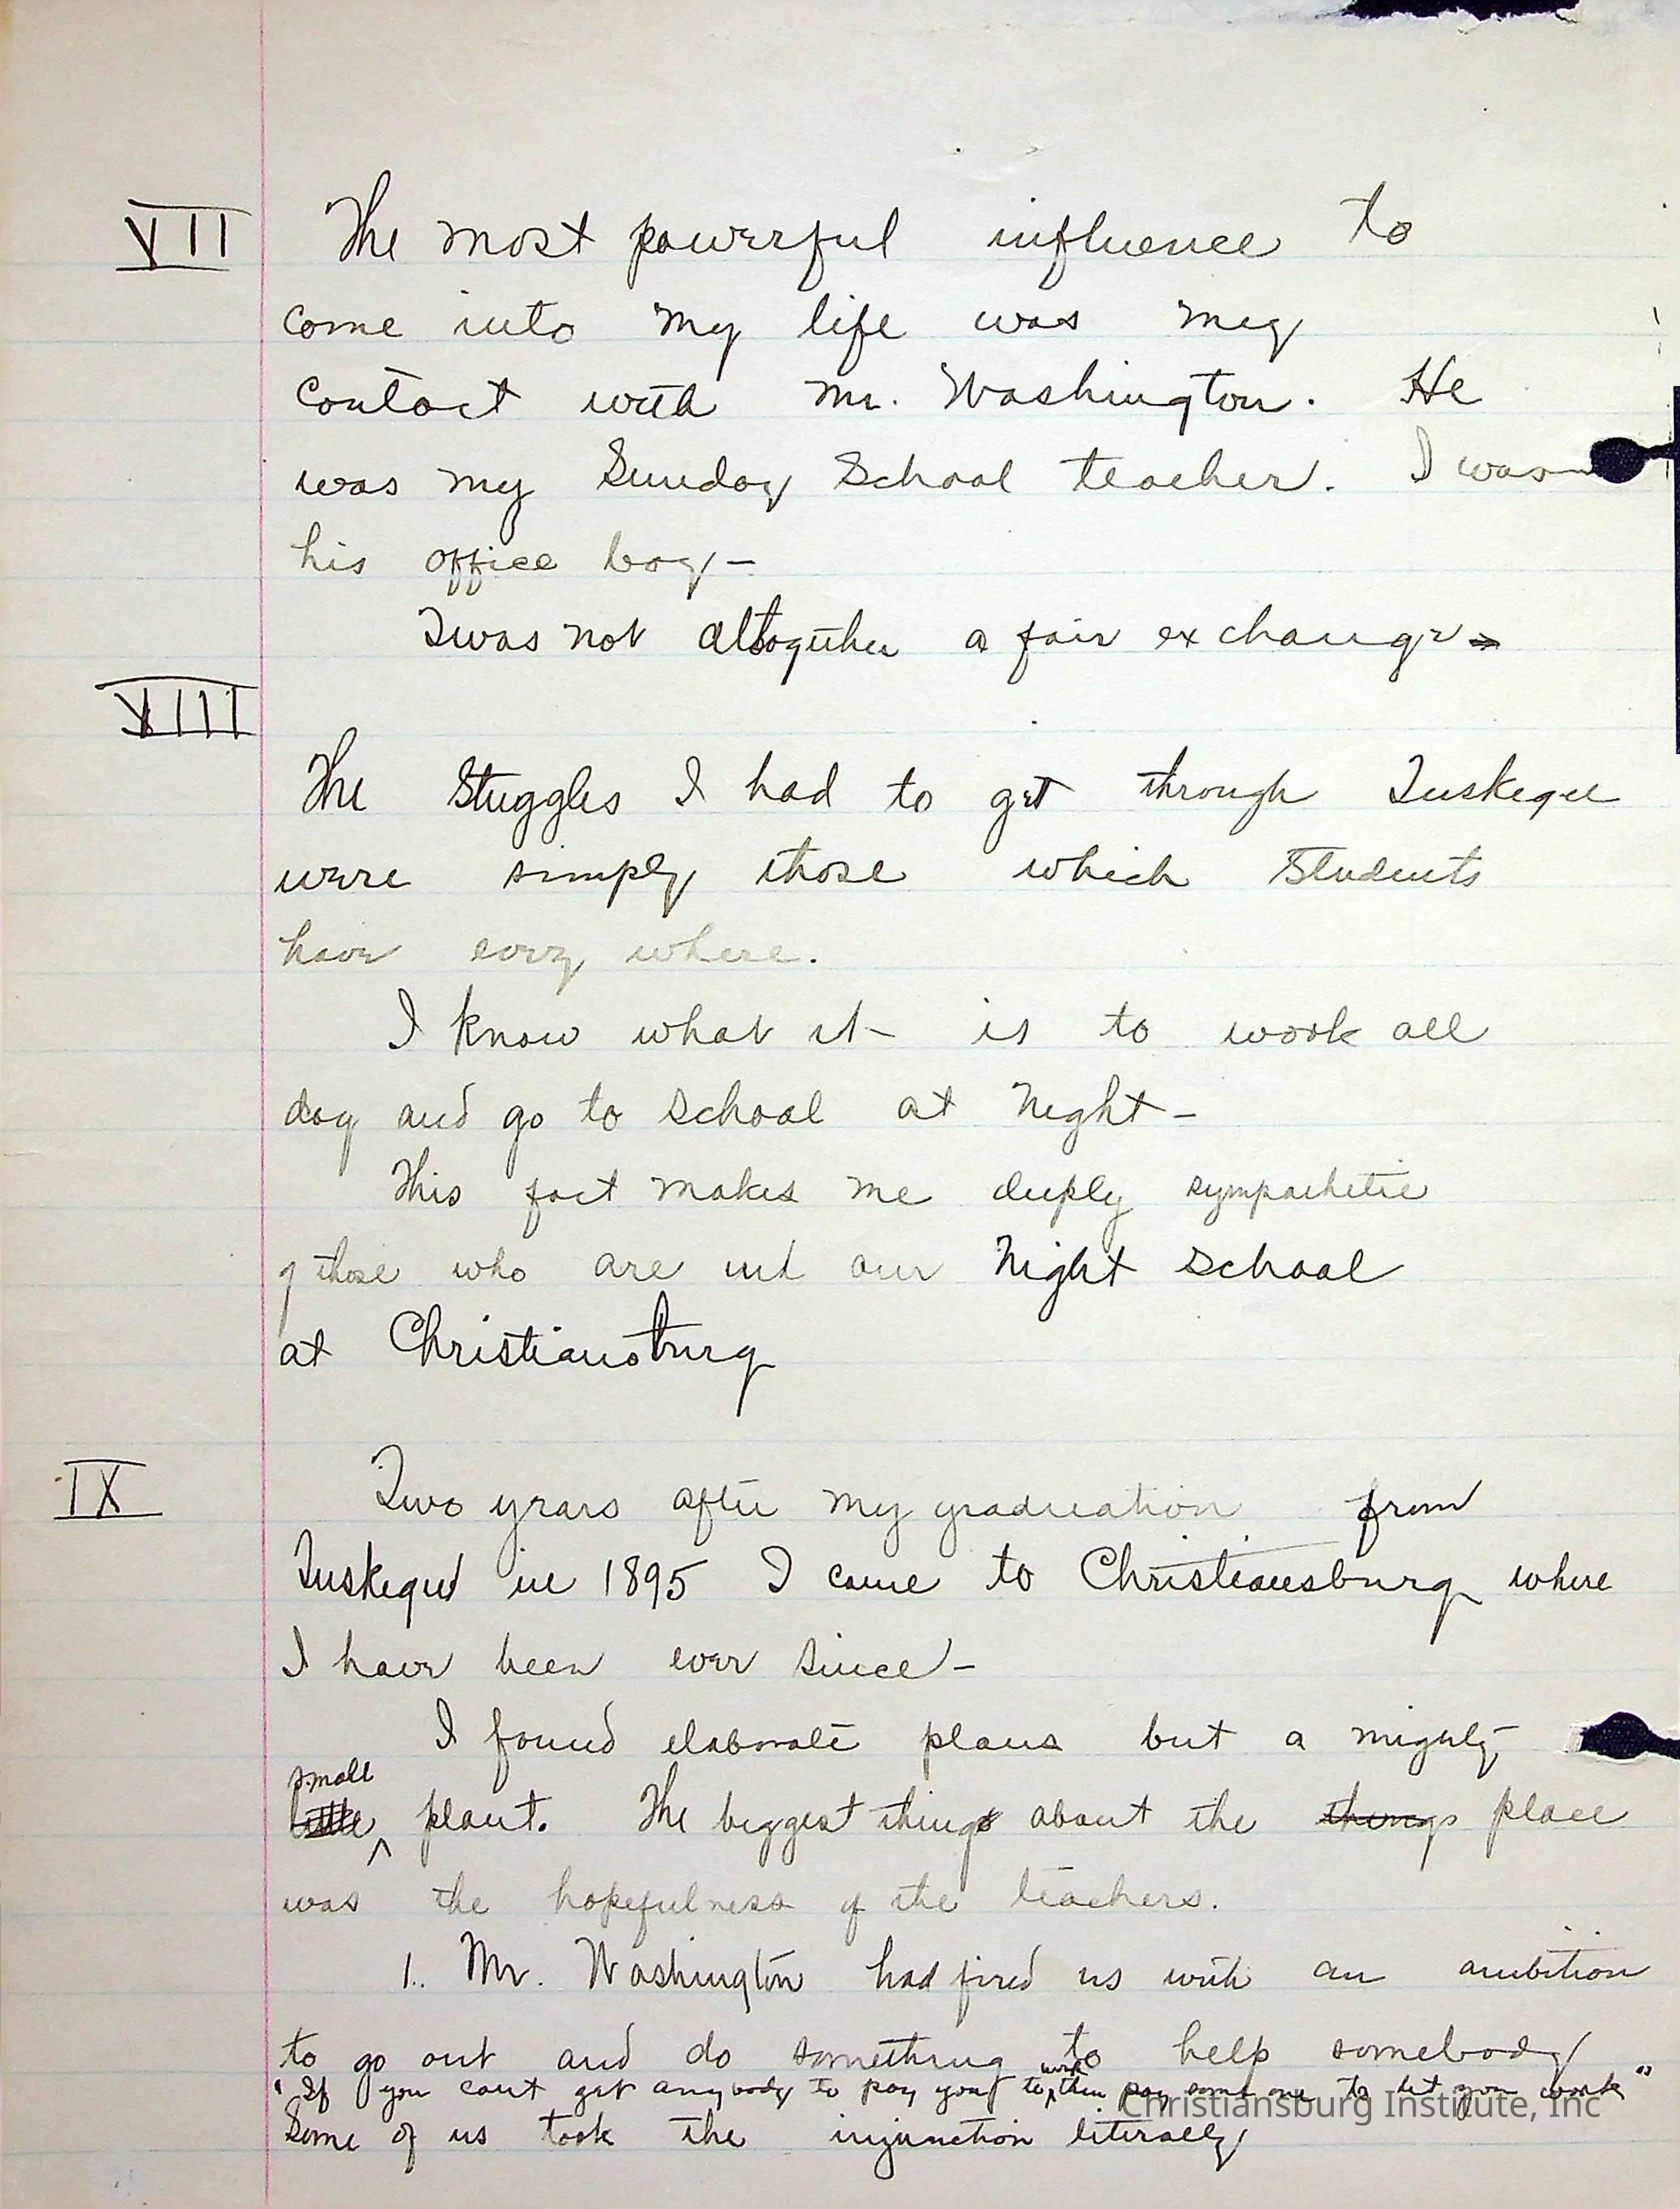 VII The most powerful influence to
come into my life was my
contact with Mr. Washington. He
was my Sunday School teacher. I was
his office boy-
Twas not altogether a fair exchange
VIII
The Stuggles I had to get through Tuskegee
were simply those which Students
have every where.
I know what it is to work all
day and go to school at Night-
This fact makes me deeply sympathetic
of those who are our Night School
at Christiansburg
IX Two years after my graduation from
Tuskegee in 1895 I came to Christiansburg where
I have been ever since-
I found elaborate plans but a mighty
small
little plant. The biggest thing about the things place
was the hopefulness of the teachers.
1. Mr. Washington had fired us with an ambition
to go out and do something to help somebody
work
"If you cant get anybody to pay you to then pay some one to let you work"
Some of us took the injunction literally
Christiansburg Institute, Inc